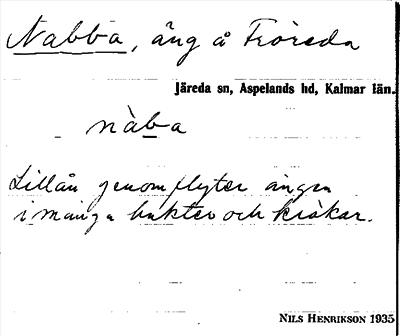 Nabba, äng å Fröreda
Järeda sn, Aspelands hd, Kalmar län.
nàba
Lillån genomflyter ängen
i många bukter och krökar.
NILS HENRIKSON 1935